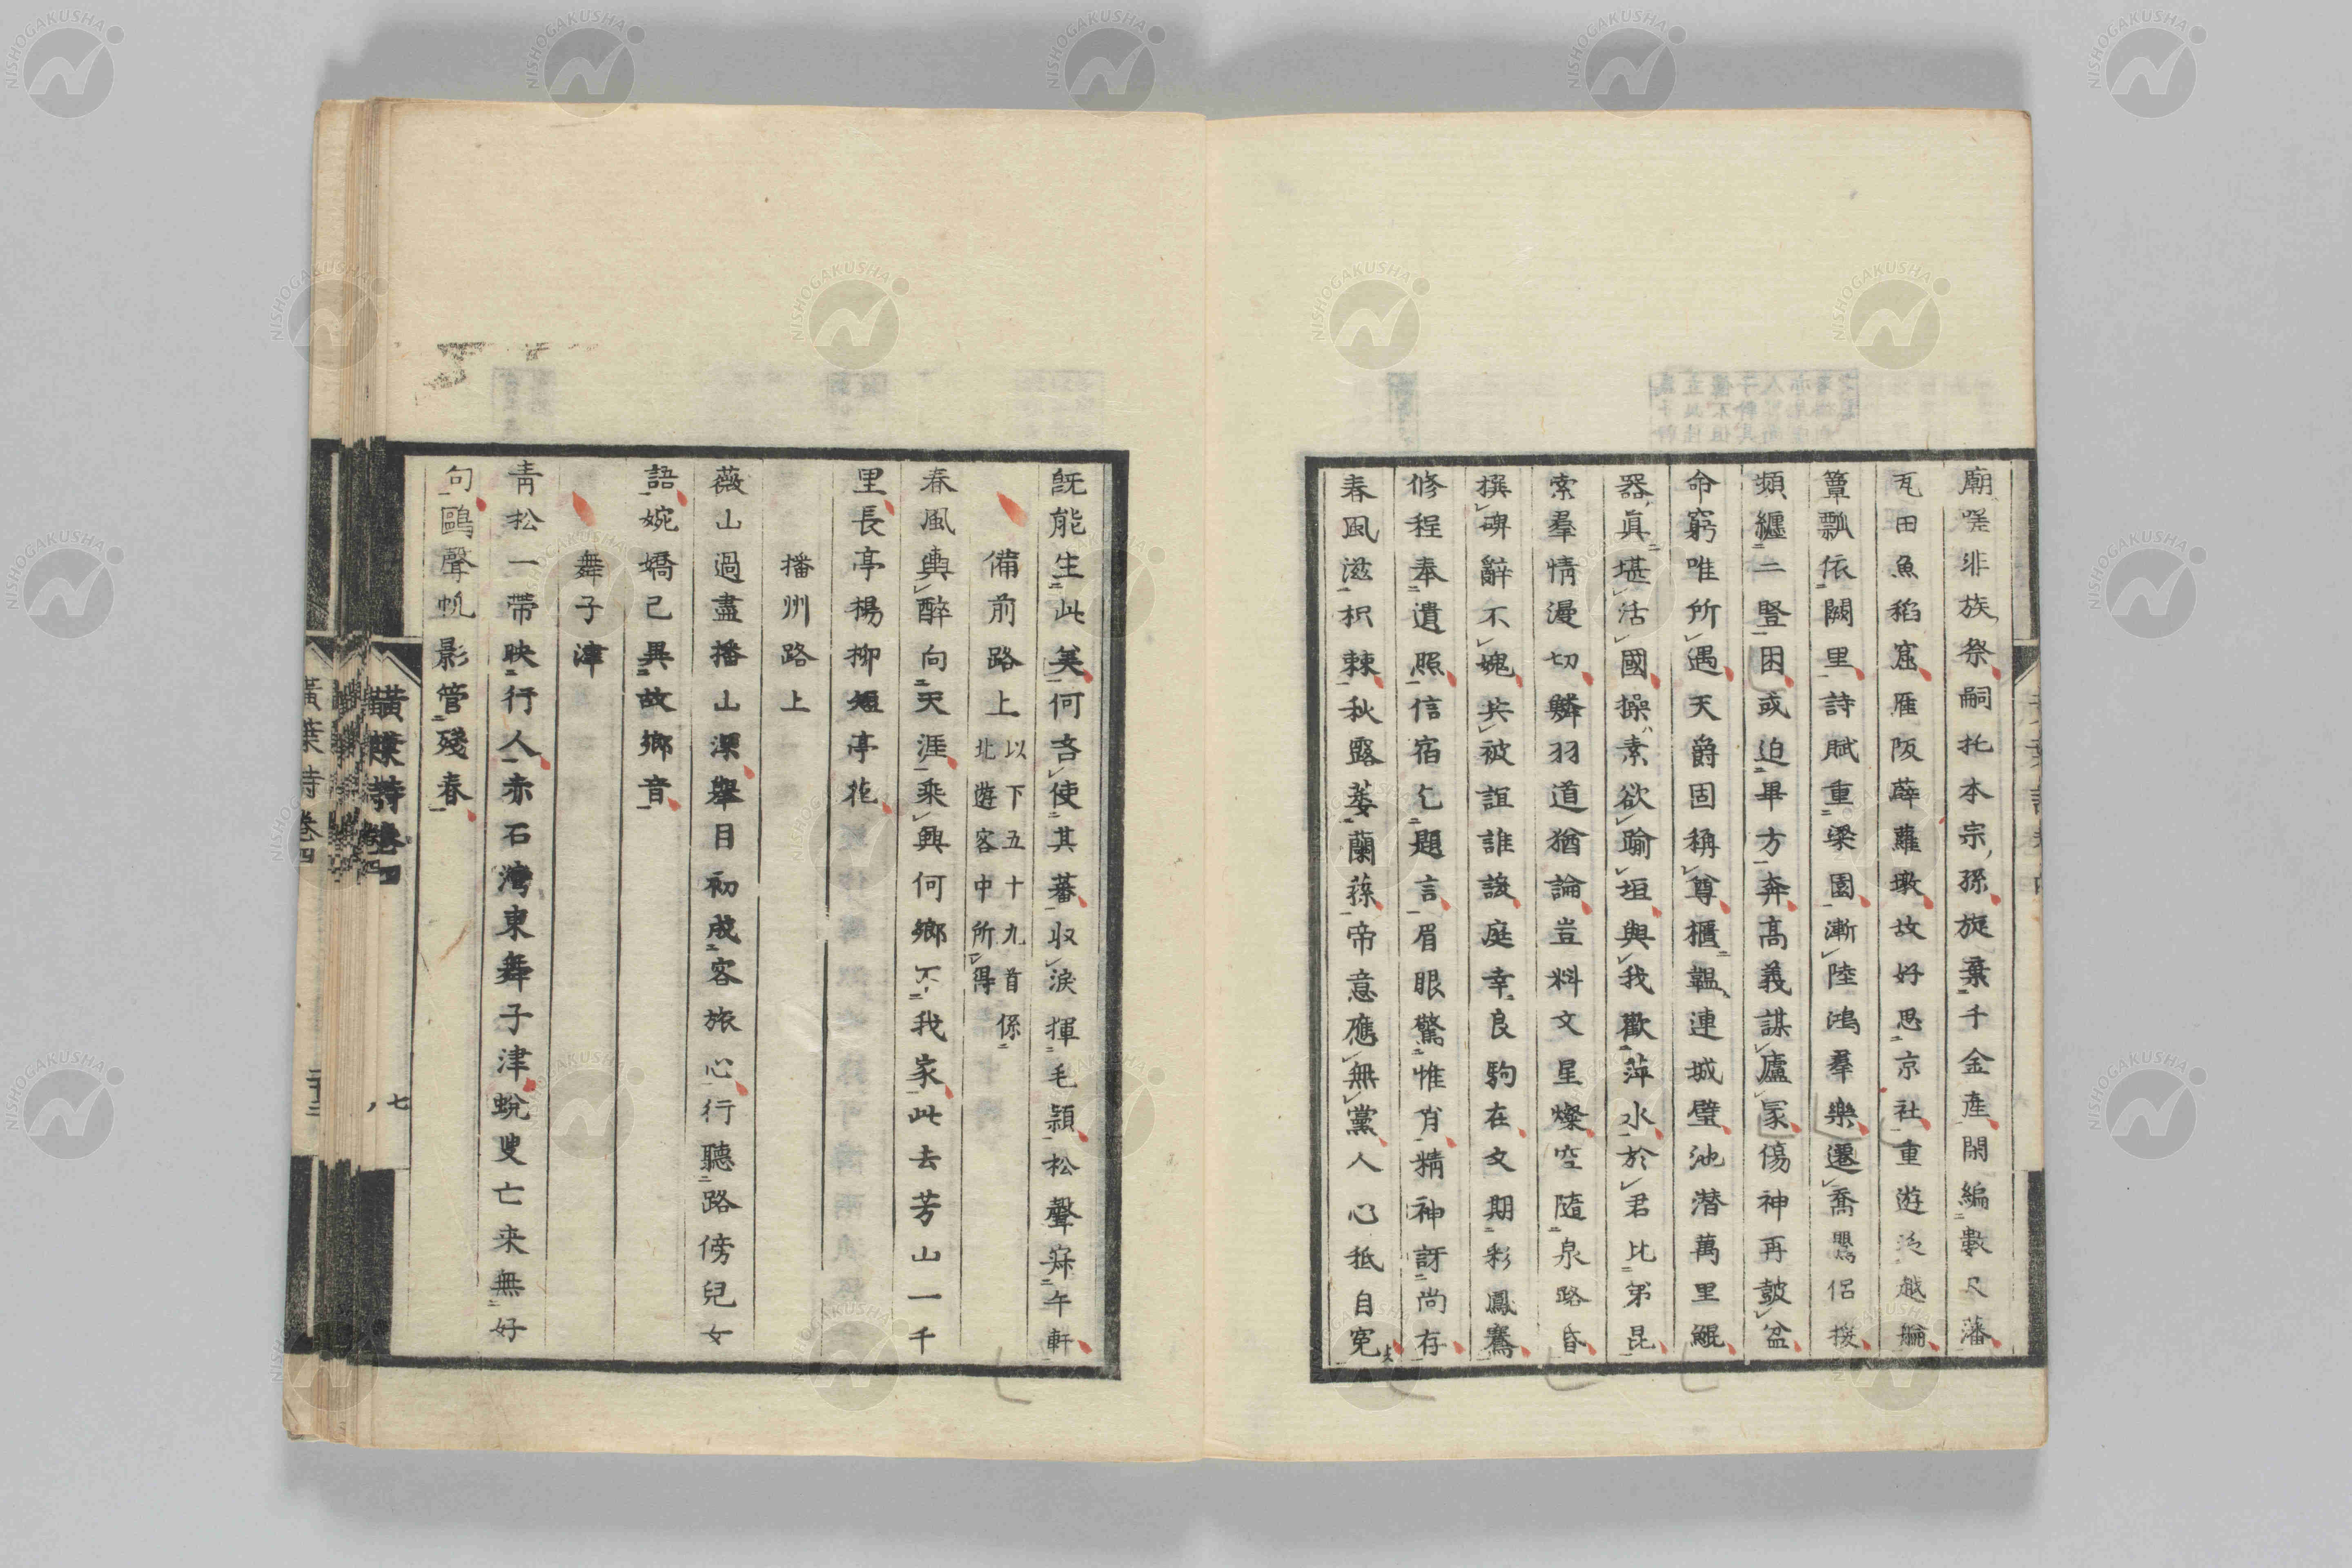 廟嘆非族祭嗣托本宗孫旋棄千金產閑編數尺藩
瓦田魚稻窟雁阪薜蘿墩故好思京社重遊泛越艑
簞瓢依闕里詩賦重梁園漸陸鴻羣樂遷喬鷪侶援
頻纏二豎困或迫畢方奔高義謀廬冢傷神再鼓盆
命窮唯所遇天爵固稱尊櫃韞連城璧池潛萬里鯤
器眞堪活國操素欲踰垣與我歡萍水於君比弟昆
索羣情漫切鱗羽道猶論豈料文星燦空隨泉路昏
撰碑辭不媿共被誼誰諼庭幸良駒在文期彩鳳騫
修程奉遺照信宿乞題言眉眼驚惟肖精神訝尚存
春風滋枳棘秋露萎蘭蓀帝意應無黨人心秪自寃
旣能生此美何吝使其蕃収淚揮毛穎松聲寂午軒
備前路上 以下五十九首係北遊客中所得
春風輿醉向天涯乘興何鄉不我家此去芳山一千
里長亭楊柳短亭花
播州路上
薇山過盡播山深擧目初成客旅心行聽路傍兒女
語婉嬌已異故鄉音
舞子濱
靑松一帶映行人赤石灣東舞子津蛻叟亡来無好
句鷗聲帆影管殘春
黃葉詩卷四
七
黃葉詩卷四